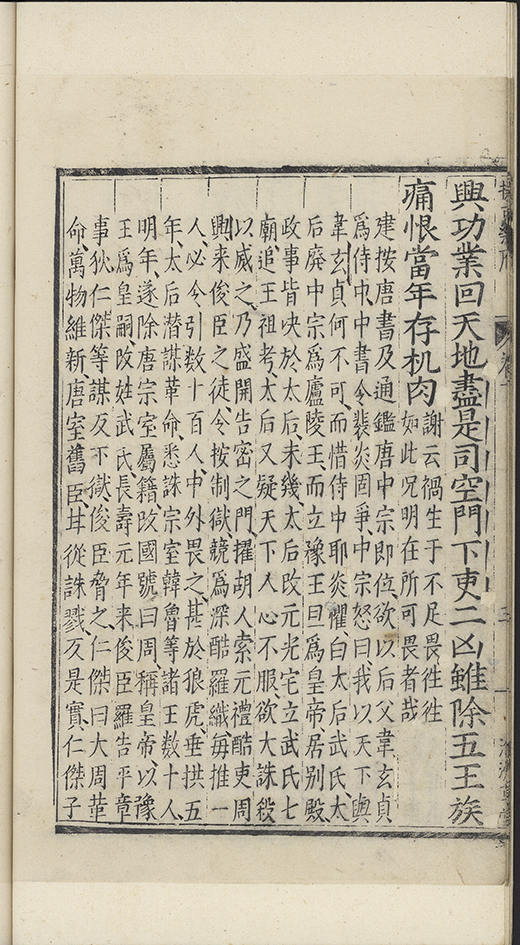 興功業回天地盡是司空門下吏二凶雖除五王族
痛恨當年存机肉
謝云禍生于不足畏徃徃
如此况明在所可畏者哉
建按唐書及通鑑唐中宗即位欲以后父韋玄貞
爲侍中中書令裴炎固爭中宗怒曰我以天下與
韋玄貞何不可而惜侍中耶炎懼白太后武氏太
后廢中宗爲廬陵王而立豫王旦爲皇帝居别殿
政事皆央於太后未幾太后改元光宅立武氏七
廟追王祖考太后又疑天下人心不服欲大誅殺
以威之乃盛開告密之門擢胡人索元禮酷吏周
興来俊臣之徒令按制獄競爲深酷羅織每推一
人必令引数十百人中外畏之甚於狼虎垂拱五
年太后潜謀革命悉誅宗室韓魯等諸王数十人
明年遂除唐宗室屬籍改國號曰周稱皇帝以豫
王爲皇嗣改姓武氏長壽元年来俊臣羅告平章
事狄仁傑等謀反下獄俊臣脅之仁傑曰大周革
命萬物維新唐室舊臣甘從誅戮反是實仁傑子